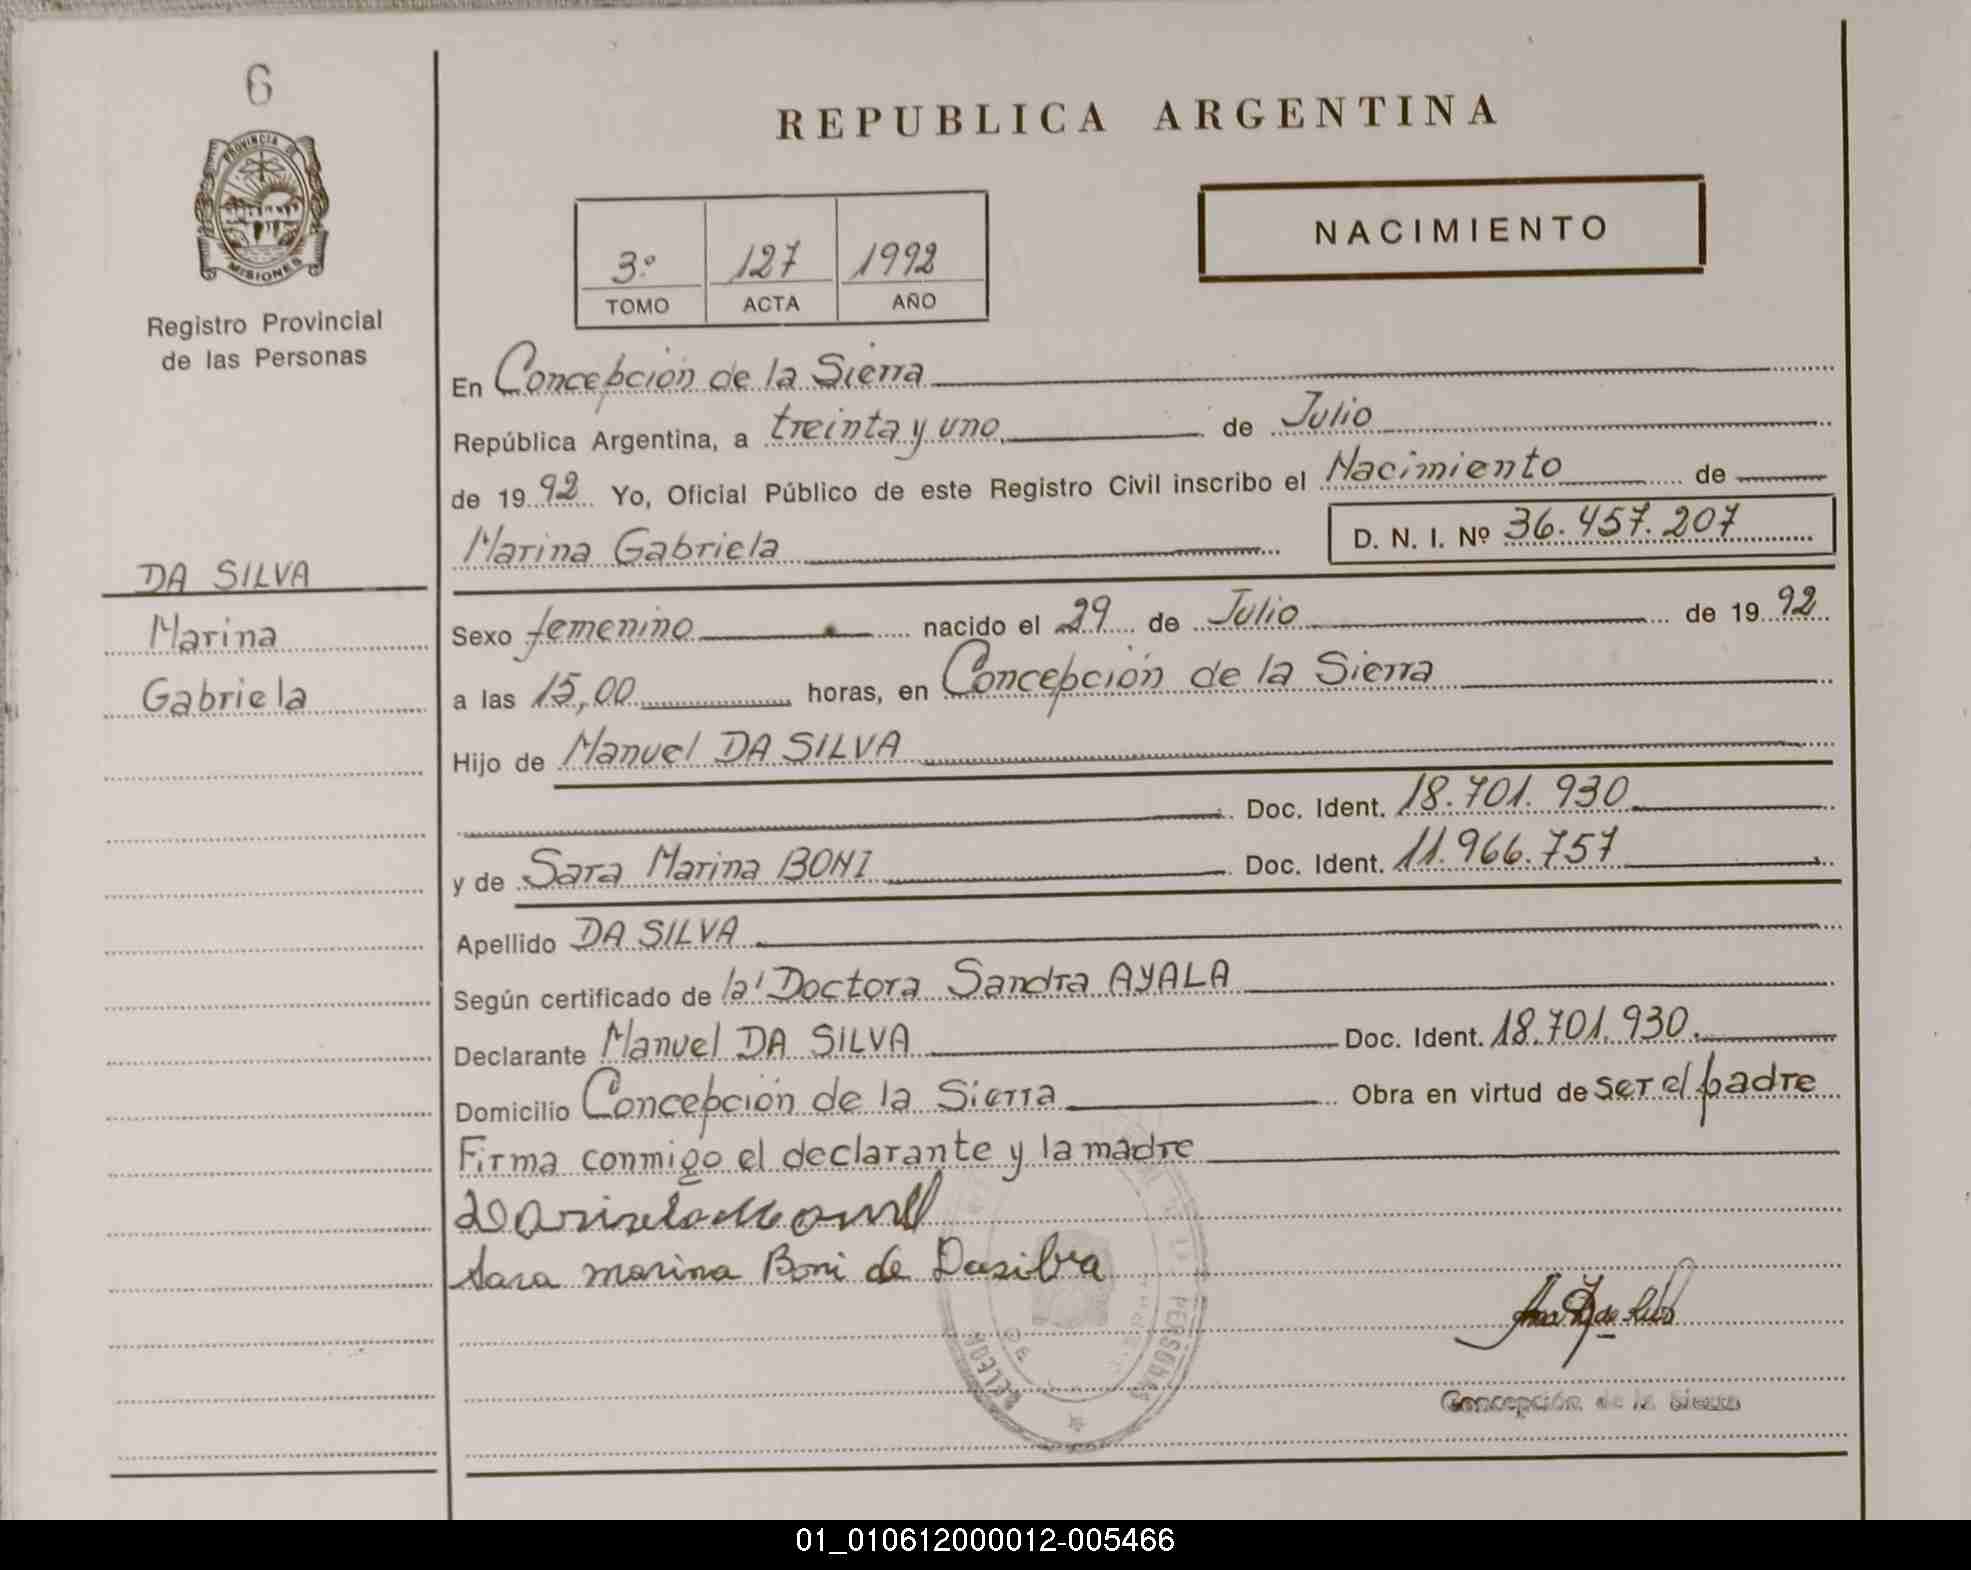 6
PROVINCIA DE
MISIONES
Registro Provincial
de las Personas
DA SILVA
Marina
Gabriela
REPUBLICA ARGENTINA
NACIMIENTO
3º 127 1992
TOMO ACTA AÑO
En Concepción de la Sierra
República Argentina, a treinta y uno de Julio
de 1992 Yo, Oficial Público de este Registro Civil inscribo el Nacimiento de
Marina Gabriela D. N. I. Nº 36.457.207
Sexo femenino nacido el 29 de Julio de 1992
a las 15,00 horas, en Concepción de la Sierra
Hijo de Manuel DA SILVA
Doc. Ident. 18.701.930
y de Sara Marina BONI Doc. Ident. 11.966.757
Apellido DA SILVA
Según certificado de la Doctora Sandra AYALA
Declarante Manuel DA SILVA Doc. Ident. 18.701.930.
Domicilio Concepción de la Sierra Obra en virtud de ser el padre
Firma conmigo el declarante y la madre
Sara marina Boni de Dasilva
PERSONAS
DE
Concepción de la Sierra
01_010612000012-005466